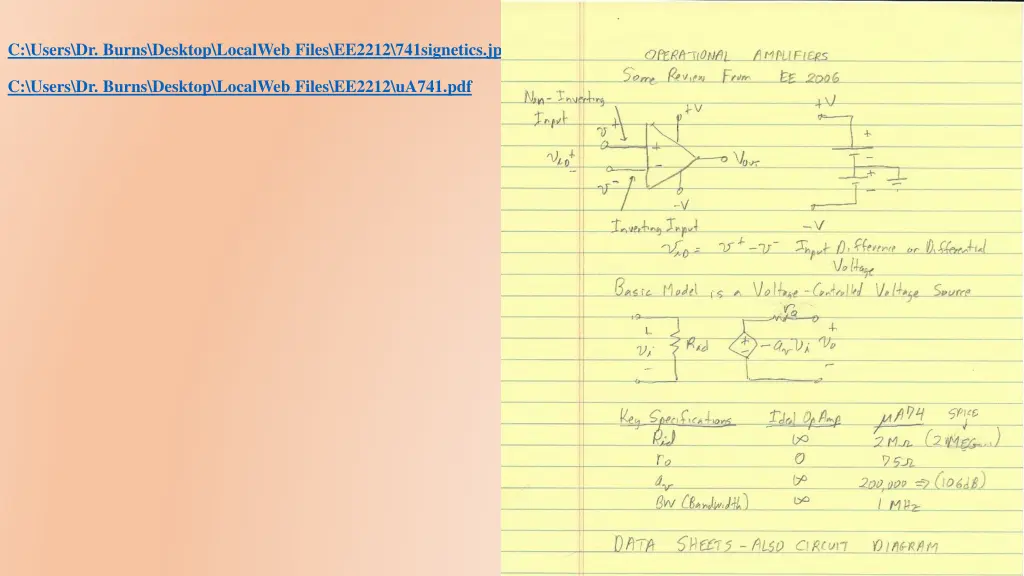 C:\Users\Dr. Burns\Desktop\LocalWeb Files\EE2212\741signetics.jp
C:\Users\Dr. Burns\Desktop\LocalWeb Files\EE2212\uA741.pdf
OPERATIONAL AMPLIFIERS
Some Review From EE 2006
Non-Inverting
Input
v+
+V
+V
+
+
-
vID
+
-
VOUT
-
+
-
v-
-V
-V
Inverting Input
vID = v+ - v- Input Difference or Differential
Voltage
Basic Model is a Voltage-Controlled Voltage Source
ro
+
vi
Rid
+
-
-avvi
vo
-
-
Key Specifications Ideal Op Amp μA74 SPICE
Rid ∞ 2MΩ (2MEG...)
ro 0 75Ω
av ∞ 200,000 ⇒ (106dB)
BW (Bandwidth) ∞ 1 MHz
DATA SHEETS - ALSO CIRCUIT DIAGRAM